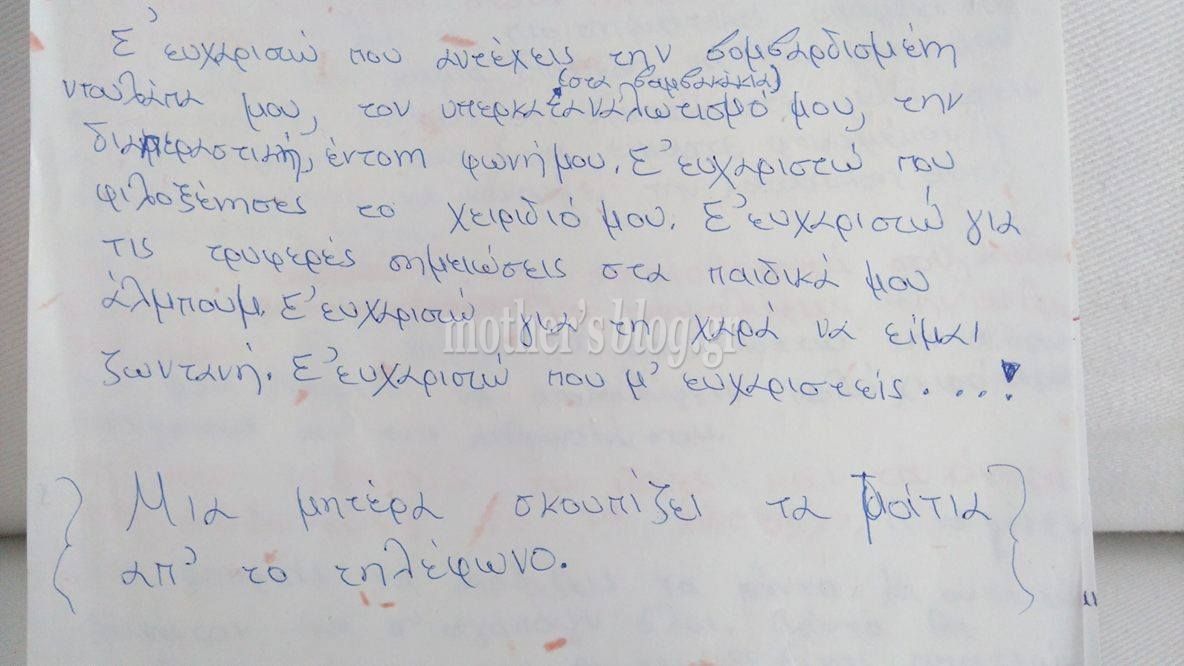 Σ' ευχαριστώ που αντέχεις την βομβαρδισμένη
(στα βαμβακάκια)
ντουλάπα μου, τον υπερκαταναλωτισμό μου, την
διαπεραστική, έντονη φωνή μου. Σ' ευχαριστώ που
φιλοξένησες το χειρίδιό μου. Σ' ευχαριστώ για
τις τρυφερές σημειώσεις στα παιδικά μου
άλμπουμ. Σ' ευχαριστώ για τη χαρά να είμαι
mother's blog.gr
ζωντανή. Σ' ευχαριστώ που μ' ευχαριστείς....!
{ Μια μητέρα σκουπίζει τα μάτια }
απ' το τηλέφωνο.